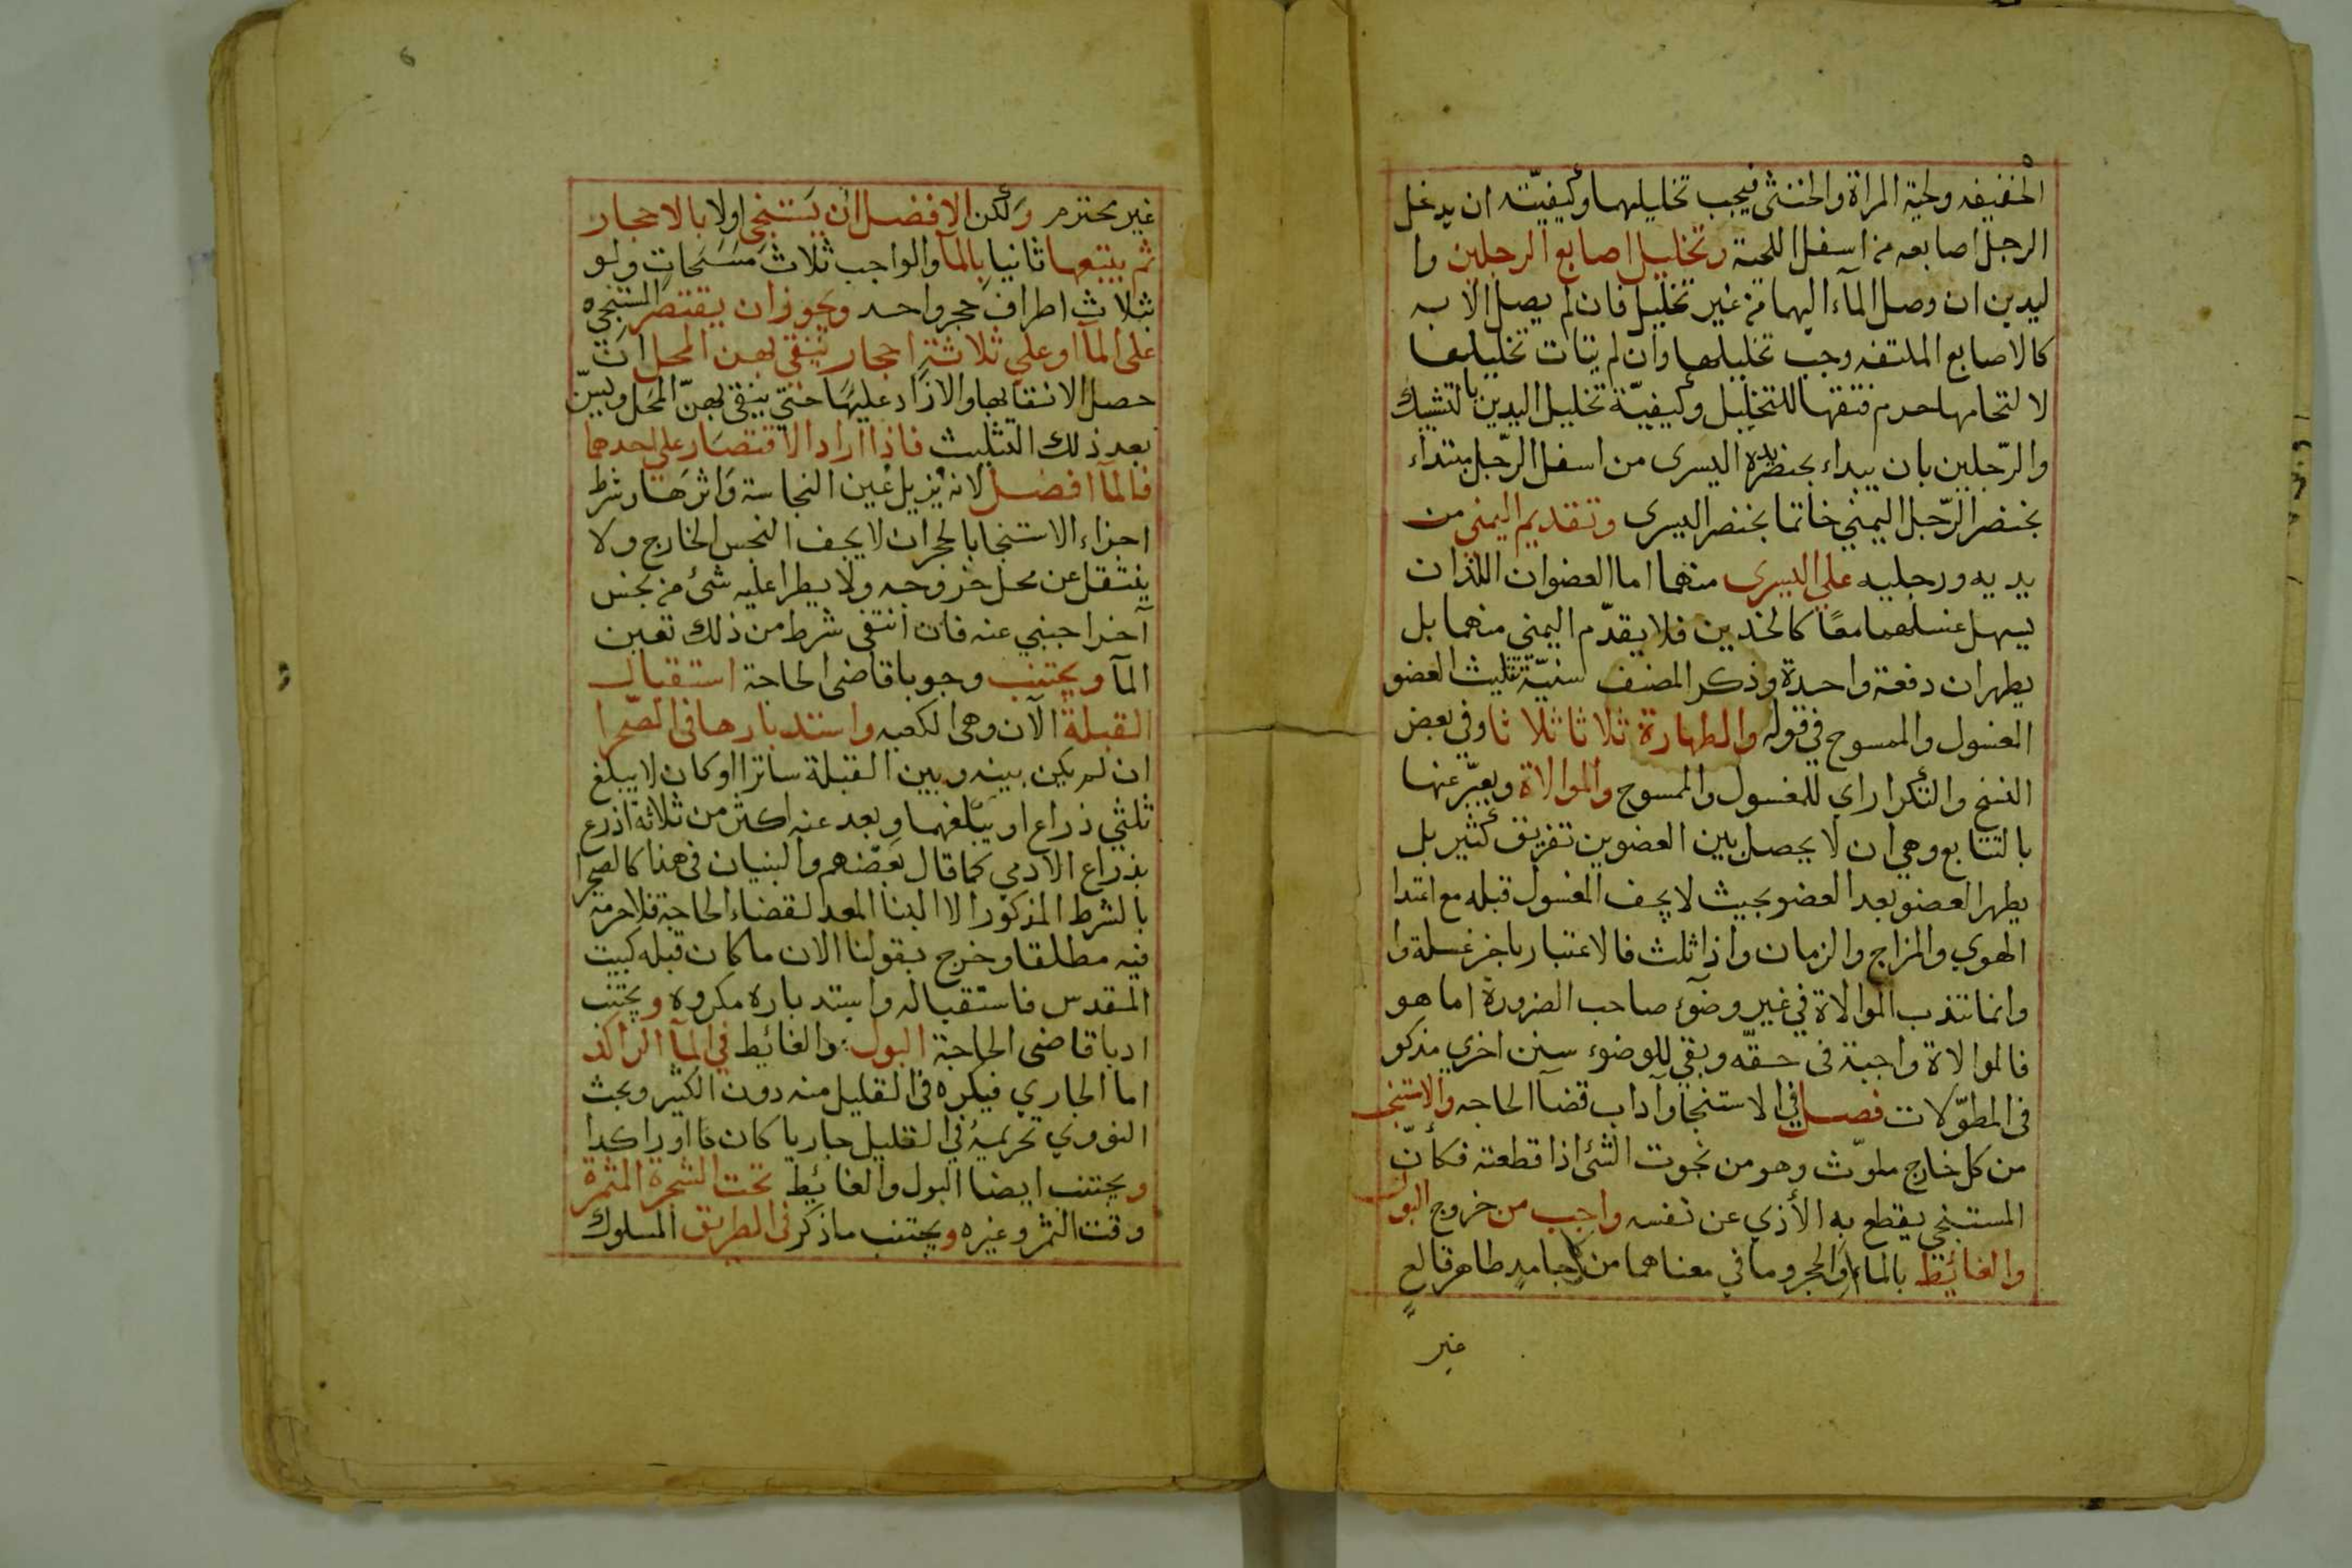 الخفيفه ولحية المراة والخنثى فيجب تخليلهما وكيفيته ان يدخل
الرجل اصابعه من اسفل اللحية وتخليل اصابع الرجلين وا
ليدين ان وصل المآء اليهما من غير تخليل فان لم يصل الا به
كالاصابع الملتفه وجب تخليلها وان لم يتات تخليلها
لا لتحامها حرم فتقها للتخليل وكيفيّة تخليل اليدين بالتشبيك
والرّجلين بان يبداء بخنصر يده اليسرى من اسفل الرّجل مبتداء
بخنصر الرّجل اليمني خاتما بخنصر اليسرى وتقديم اليمنى من
يديه ورجليه علي اليسرى منهما اما العضوان اللذان
يسهل غسلهما معًا كالخدين فلا يقدّم اليمني منهما بل
يطهران دفعة واحدة وذكر المصنف سنيّة تثليث العضو
المغسول والممسوح في قوله والطهارة ثلاثا ثلاثا وفي بعض
النسخ والتكرار اي للمغسول والممسوح والموالاة ويعبّر عنها
بالتتابع وهي ان لا يحصل بين العضوين تفريق كثير بل
يطهر العضو بعد العضو بحيث لا يجف المغسول قبله مع اعتدا
الهوي والمزاج والزمان واذا ثلث فالاعتبار باخر غسلة وا
وانما تندب الموالاة في غير وضوء صاحب الضرورة اما هو
فالموالاة واجبة فى حقّه وبقي للوضوء سنن اخري مذكو
فى المطوّلات فصل في الاستنجا وآداب قضآ الحاجه والاستنجا
من كل خارج ملوّث وهو من نجوت الشئ اذا قطعته فكأنّ
المستنجي يقطع به الأذي عن نفسه واجب من خروج البول
والغائيط بالماء او الحجر وما في معناهما من كل جامدٍ طاهر قالعٍ
غير
6
غير محترم ولكن الافضل ان يستنجي اولا بالاحجار
ثم يتبعها ثانيا بالمآ والواجب ثلاث مسحاتٍ ولو
بثلاث اطراف حجر واحد ويجوز ان يقتصر المستنجي
على المآ او علي ثلاثة احجار ينقي بهن المحل ان
حصل الانقا بها والا زاد عليها حتي ينقى بهنّ المحل ويسنّ
بعد ذلك التثليث فاذا اراد الاقتصار على احدهما
فالمآ افضل لانه يزيل عين النجاسة واثرها وشرط
اجزاء الاستنجا بالحجر ان لا يجف النجس الخارج ولا
ينتقل عن محل خروجه ولا يطرا عليه شئ من نجس
آخر اجنبي عنه فان انتفى شرط من ذلك تعين
المآ ويجتنب وجوبا قاضى الحاجة استقبال
القبلة الآن وهى الكعبه واستدبارها فى الصّحرا
ان لم يكن بينه وبين القبلة ساترا او كان لا يبلغ
ثلثي ذراع او يبلغهما وبعد عنه اكثر من ثلاثة اذرع
بذراع الادمي كما قال بعضهم والبنيان فى هذا كالصحرا
بالشرط المذكور الا البنا المعد لقضاء الحاجة فلا حرمة
فيه مطلقا وخرج بقولنا الان ما كان قبله كبيت
المقدس فاستقباله واستدباره مكروه ويجتنب
ادبا قاضى الحاجة البول والغائيط في المآ الراكد
اما الجاري فيكره فى القليل منه دون الكثير وبحث
النووي تحريمه في القليل جاريا كان ما اوراكدا
ويجتنب ايضا البول والغائيط تحت الشجرة المثمرة
وقت الثمر وغيره ويجتنب ماذكر فى الطريق المسلوك